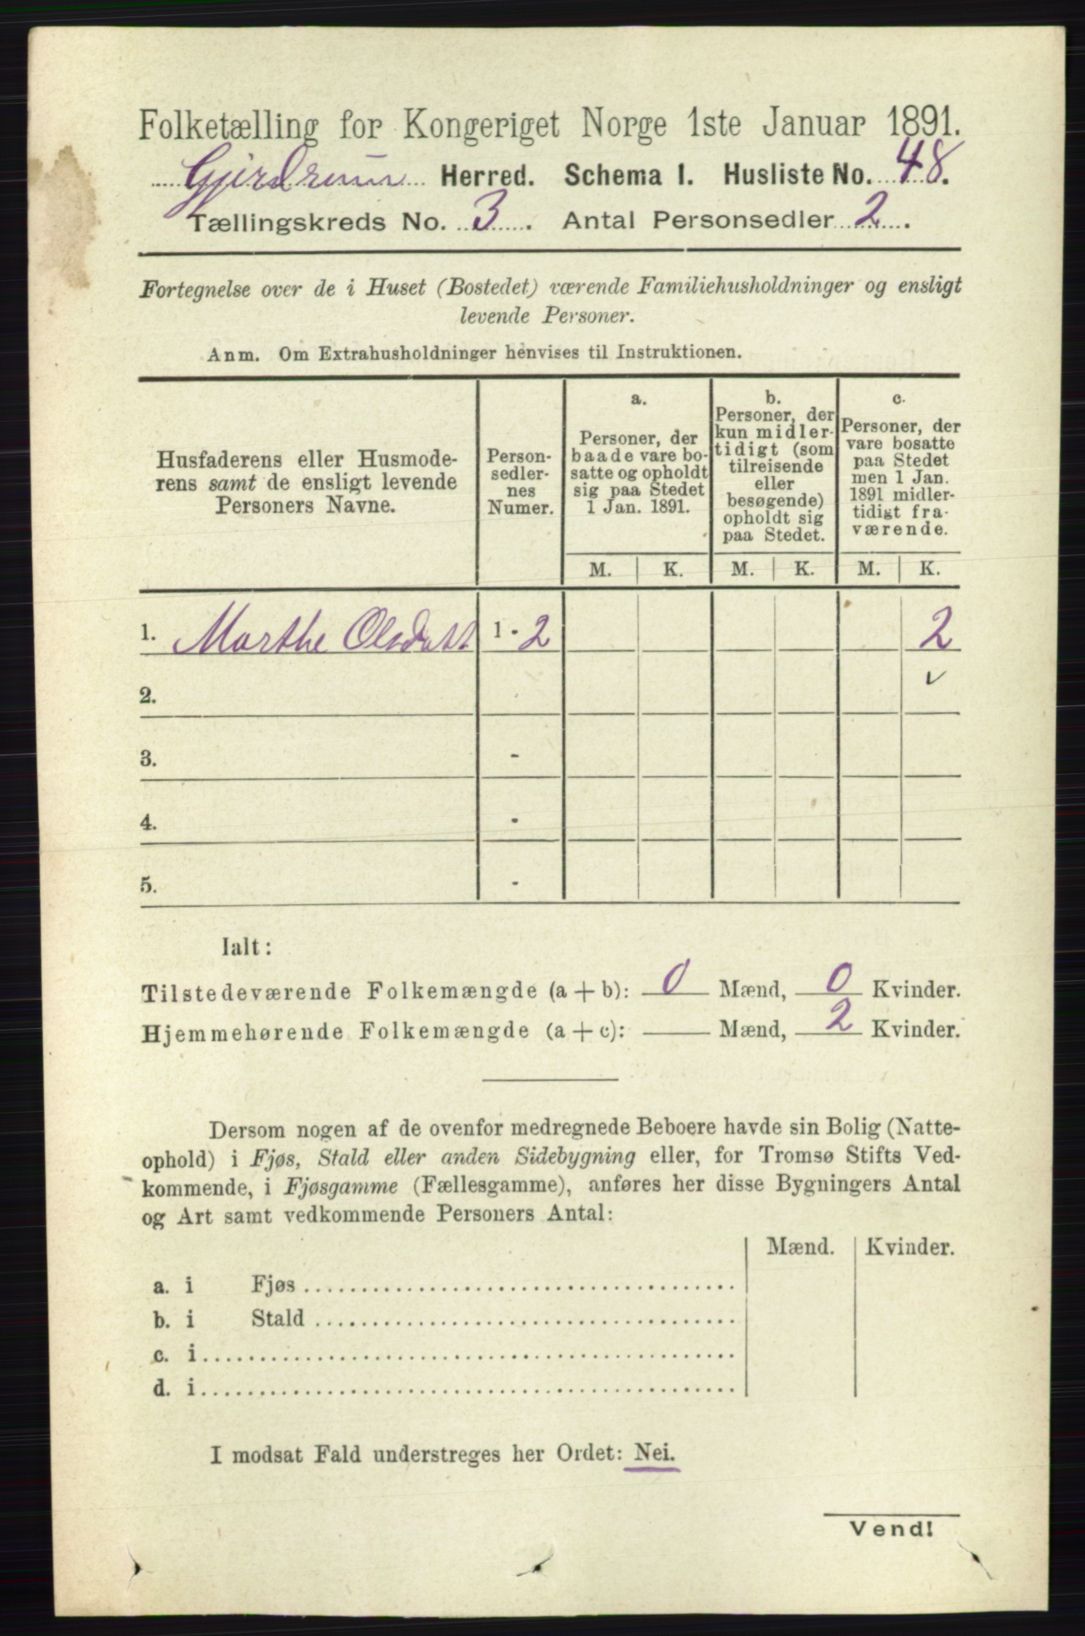 Folketælling for Kongeriget Norge 1ste Januar 1891.
Gjerdrum Herred. Schema I. Husliste No. 48.
Tællingskreds No. 3. Antal Personsedler 2.
Fortegnelse over de i Huset (Bostedet) værende Familiehusholdninger og ensligt
levende Personer.
Anm. Om Extrahusholdninger henvises til Instruktionen.
Husfaderens eller Husmode-
rens samt de ensligt levende
Personers Navne.
Person-
sedler-
nes
Numer.
a.
Personer, der
baade vare bo-
satte og opholdt
sig paa Stedet
1 Jan. 1891.
b.
Personer, der
kun midler-
tidigt (som
tilreisende
eller
besøgende)
opholdt sig
paa Stedet.
c.
Personer, der
vare bosatte
paa Stedet
men 1 Jan.
1891 midler-
tidigt fra-
værende.
M. K. M. K. M. K.
1. Marthe Olsdatt 1 - 2 2
2. -
3. -
4. -
5. -
Ialt:
Tilstedeværende Folkemængde (a + b): 0 Mænd, 0 Kvinder.
Hjemmehørende Folkemængde (a + c): Mænd, 2 Kvinder.
Dersom nogen af de ovenfor medregnede Beboere havde sin Bolig (Natte-
ophold) i Fjøs, Stald eller anden Sidebygning eller, for Tromsø Stifts Ved-
kommende, i Fjøsgamme (Fællesgamme), anføres her disse Bygningers Antal
og Art samt vedkommende Personers Antal:
Mænd. Kvinder.
a. i Fjøs
b. i Stald
c. i
d. i
I modsat Fald understreges her Ordet: Nei.
Vend!